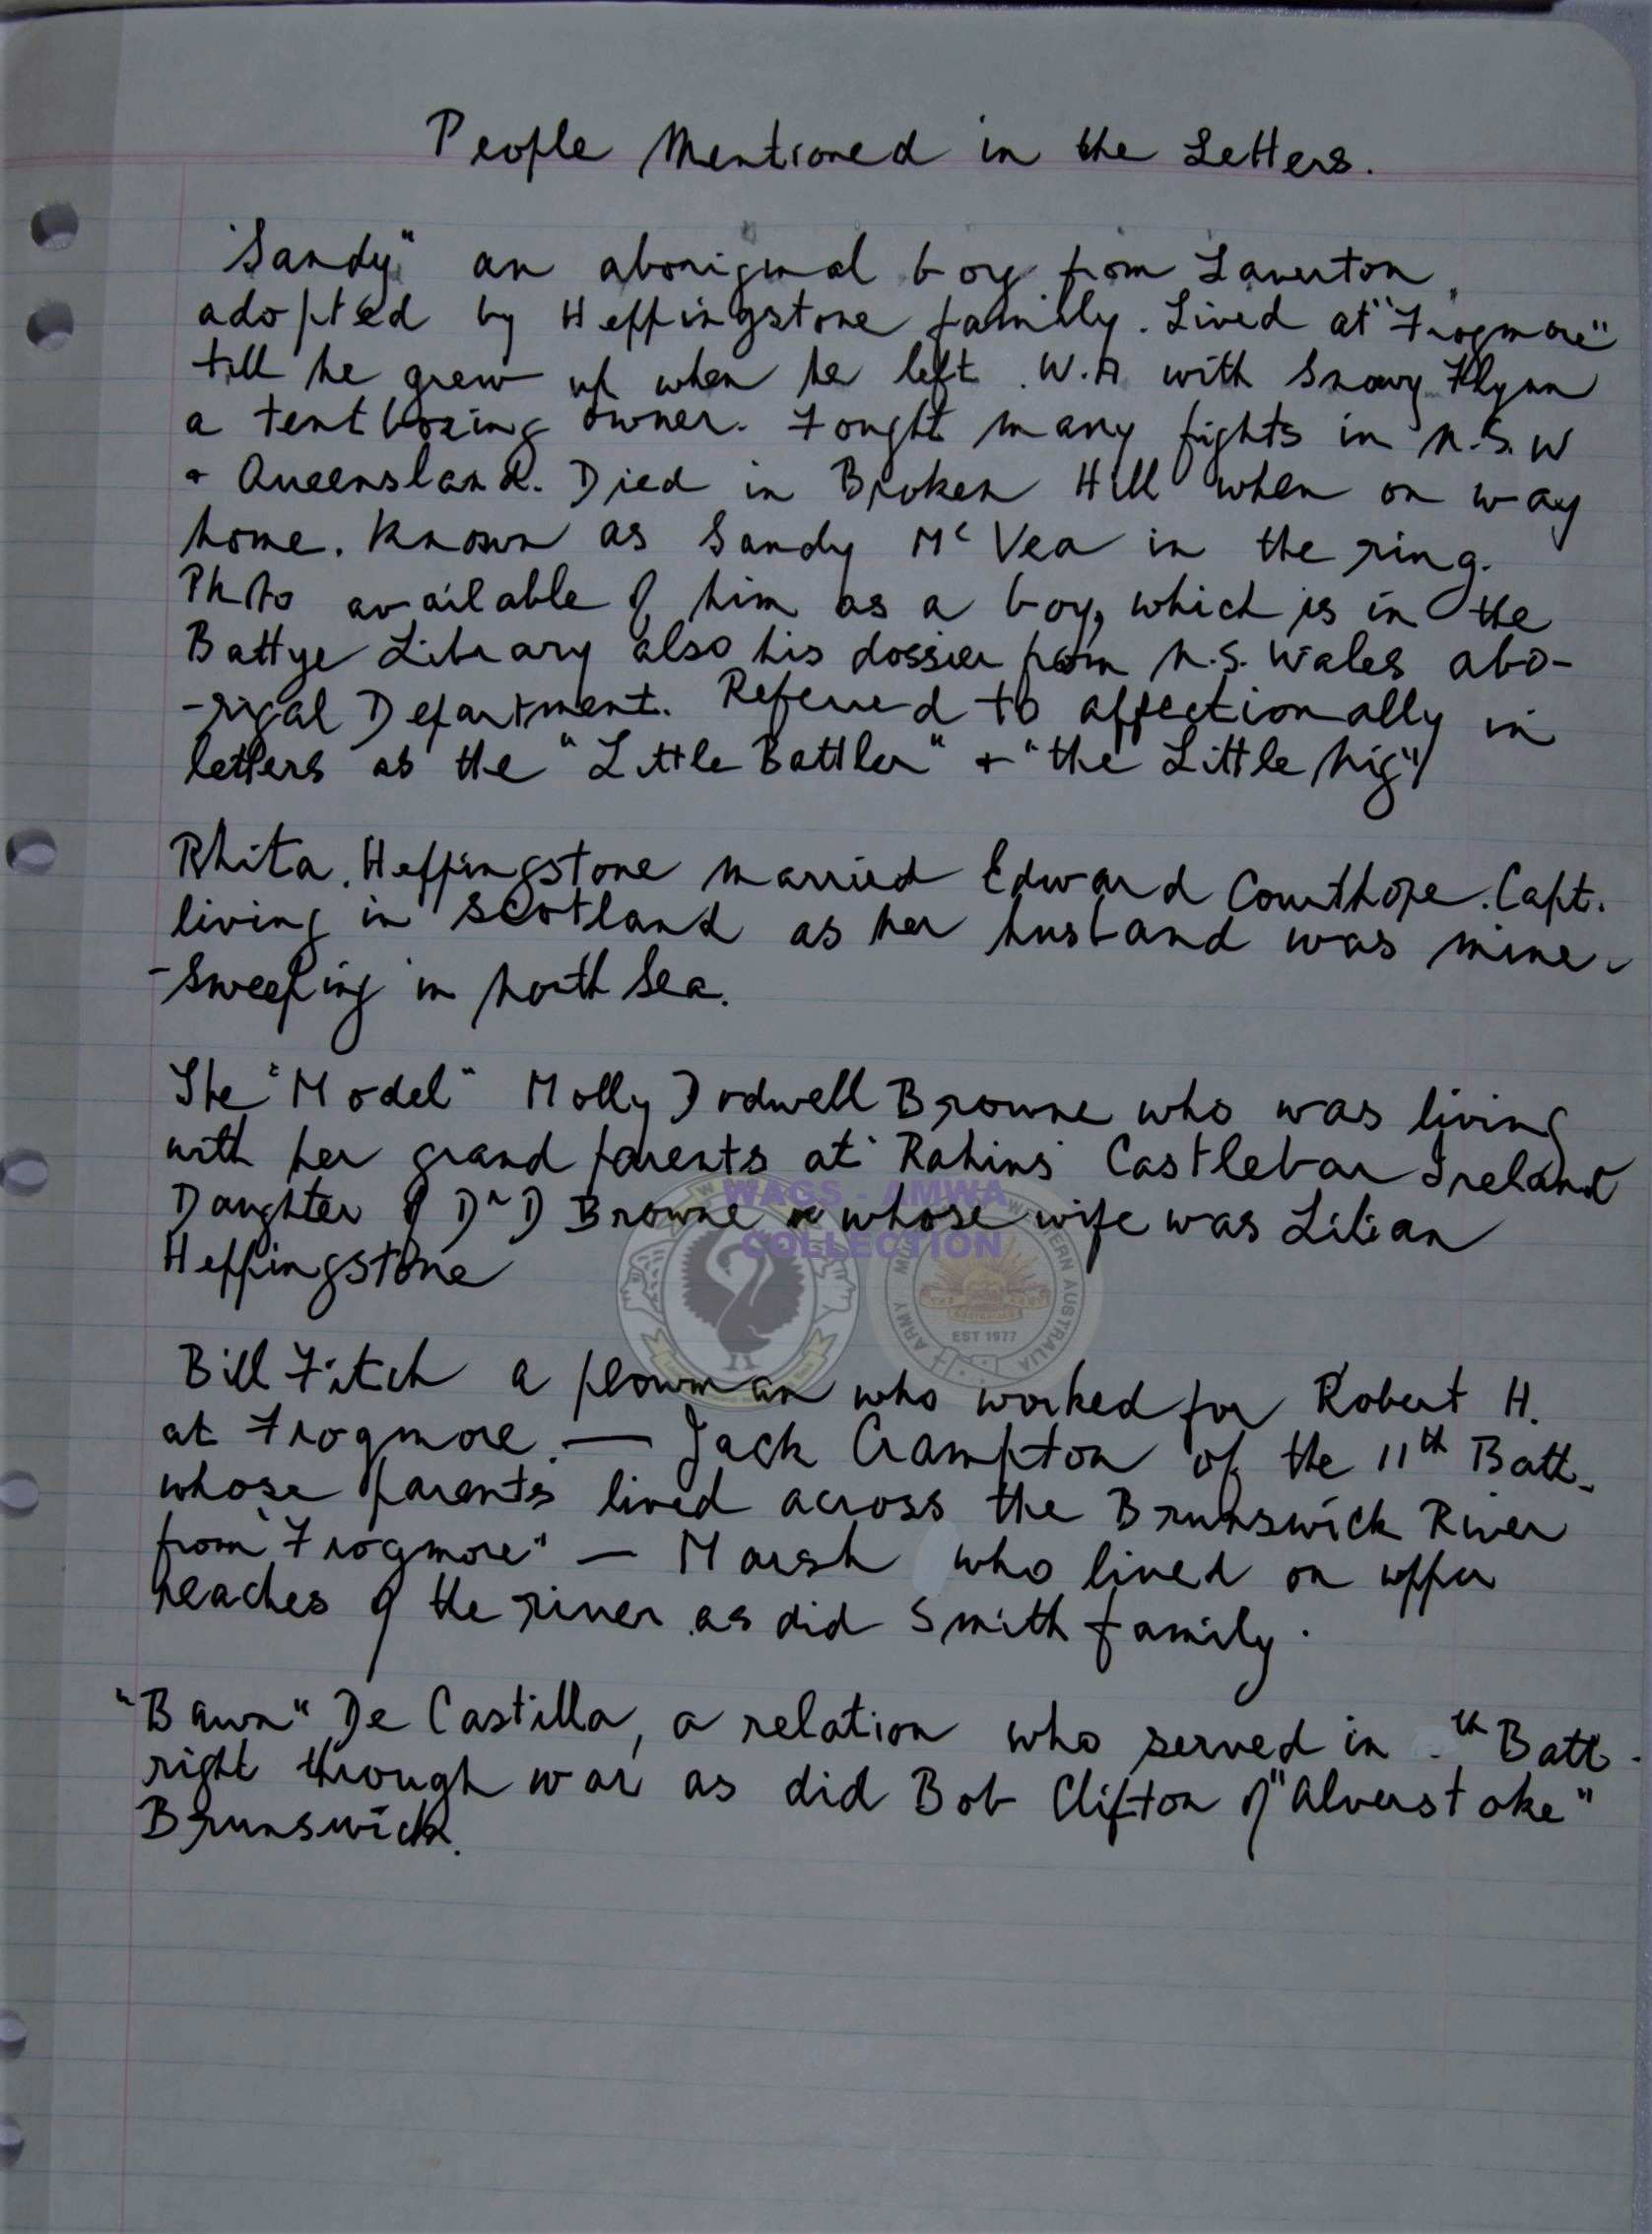 People Mentioned in the Letters.
"Sandy" an aboriginal boy from Laverton,
adopted by Heppingstone family. Lived at "Frogmore"
till he grew up when he left W.A with Snowy Flynn
a tent boxing owner. Fought many fights in N.S.W
+ Queensland. Died in Broken Hill when on way
home. Known as Sandy Mc Vea in the ring.
Photo available of him as a boy, which is in the
Battye Library also his dossier from N.S. Wales abo-
-rigal Department. Referred to affectionally in
letters as the "Little Battler" + "the Little nig"
Rhita. Heppingstone married Edward Courthope. Capt.
living in Scotland as her husband was mine-
-Sweeping in North Sea.
The "Model" Molly Dodwell Browne who was living
with her grand parents at "Rahins" Castlebar Ireland
Daughter of Dr D Browne whose wife was Lilian
Heppingstone
Bill Fitch a plowman who worked for Robert H.
at Frogmore. — Jack Crampton of the 11th Batt.
whose parents lived across the Brunswick River
from "Frogmore" — Marsh who lived on upper
reaches of the river as did Smith family.
"Bawn" De Castilla, a relation who served in th Batt.
right through war as did Bob Clifton of "Alverstoke"
Brunswick.
WAGS - AMWA
COLLECTION
EST 1977